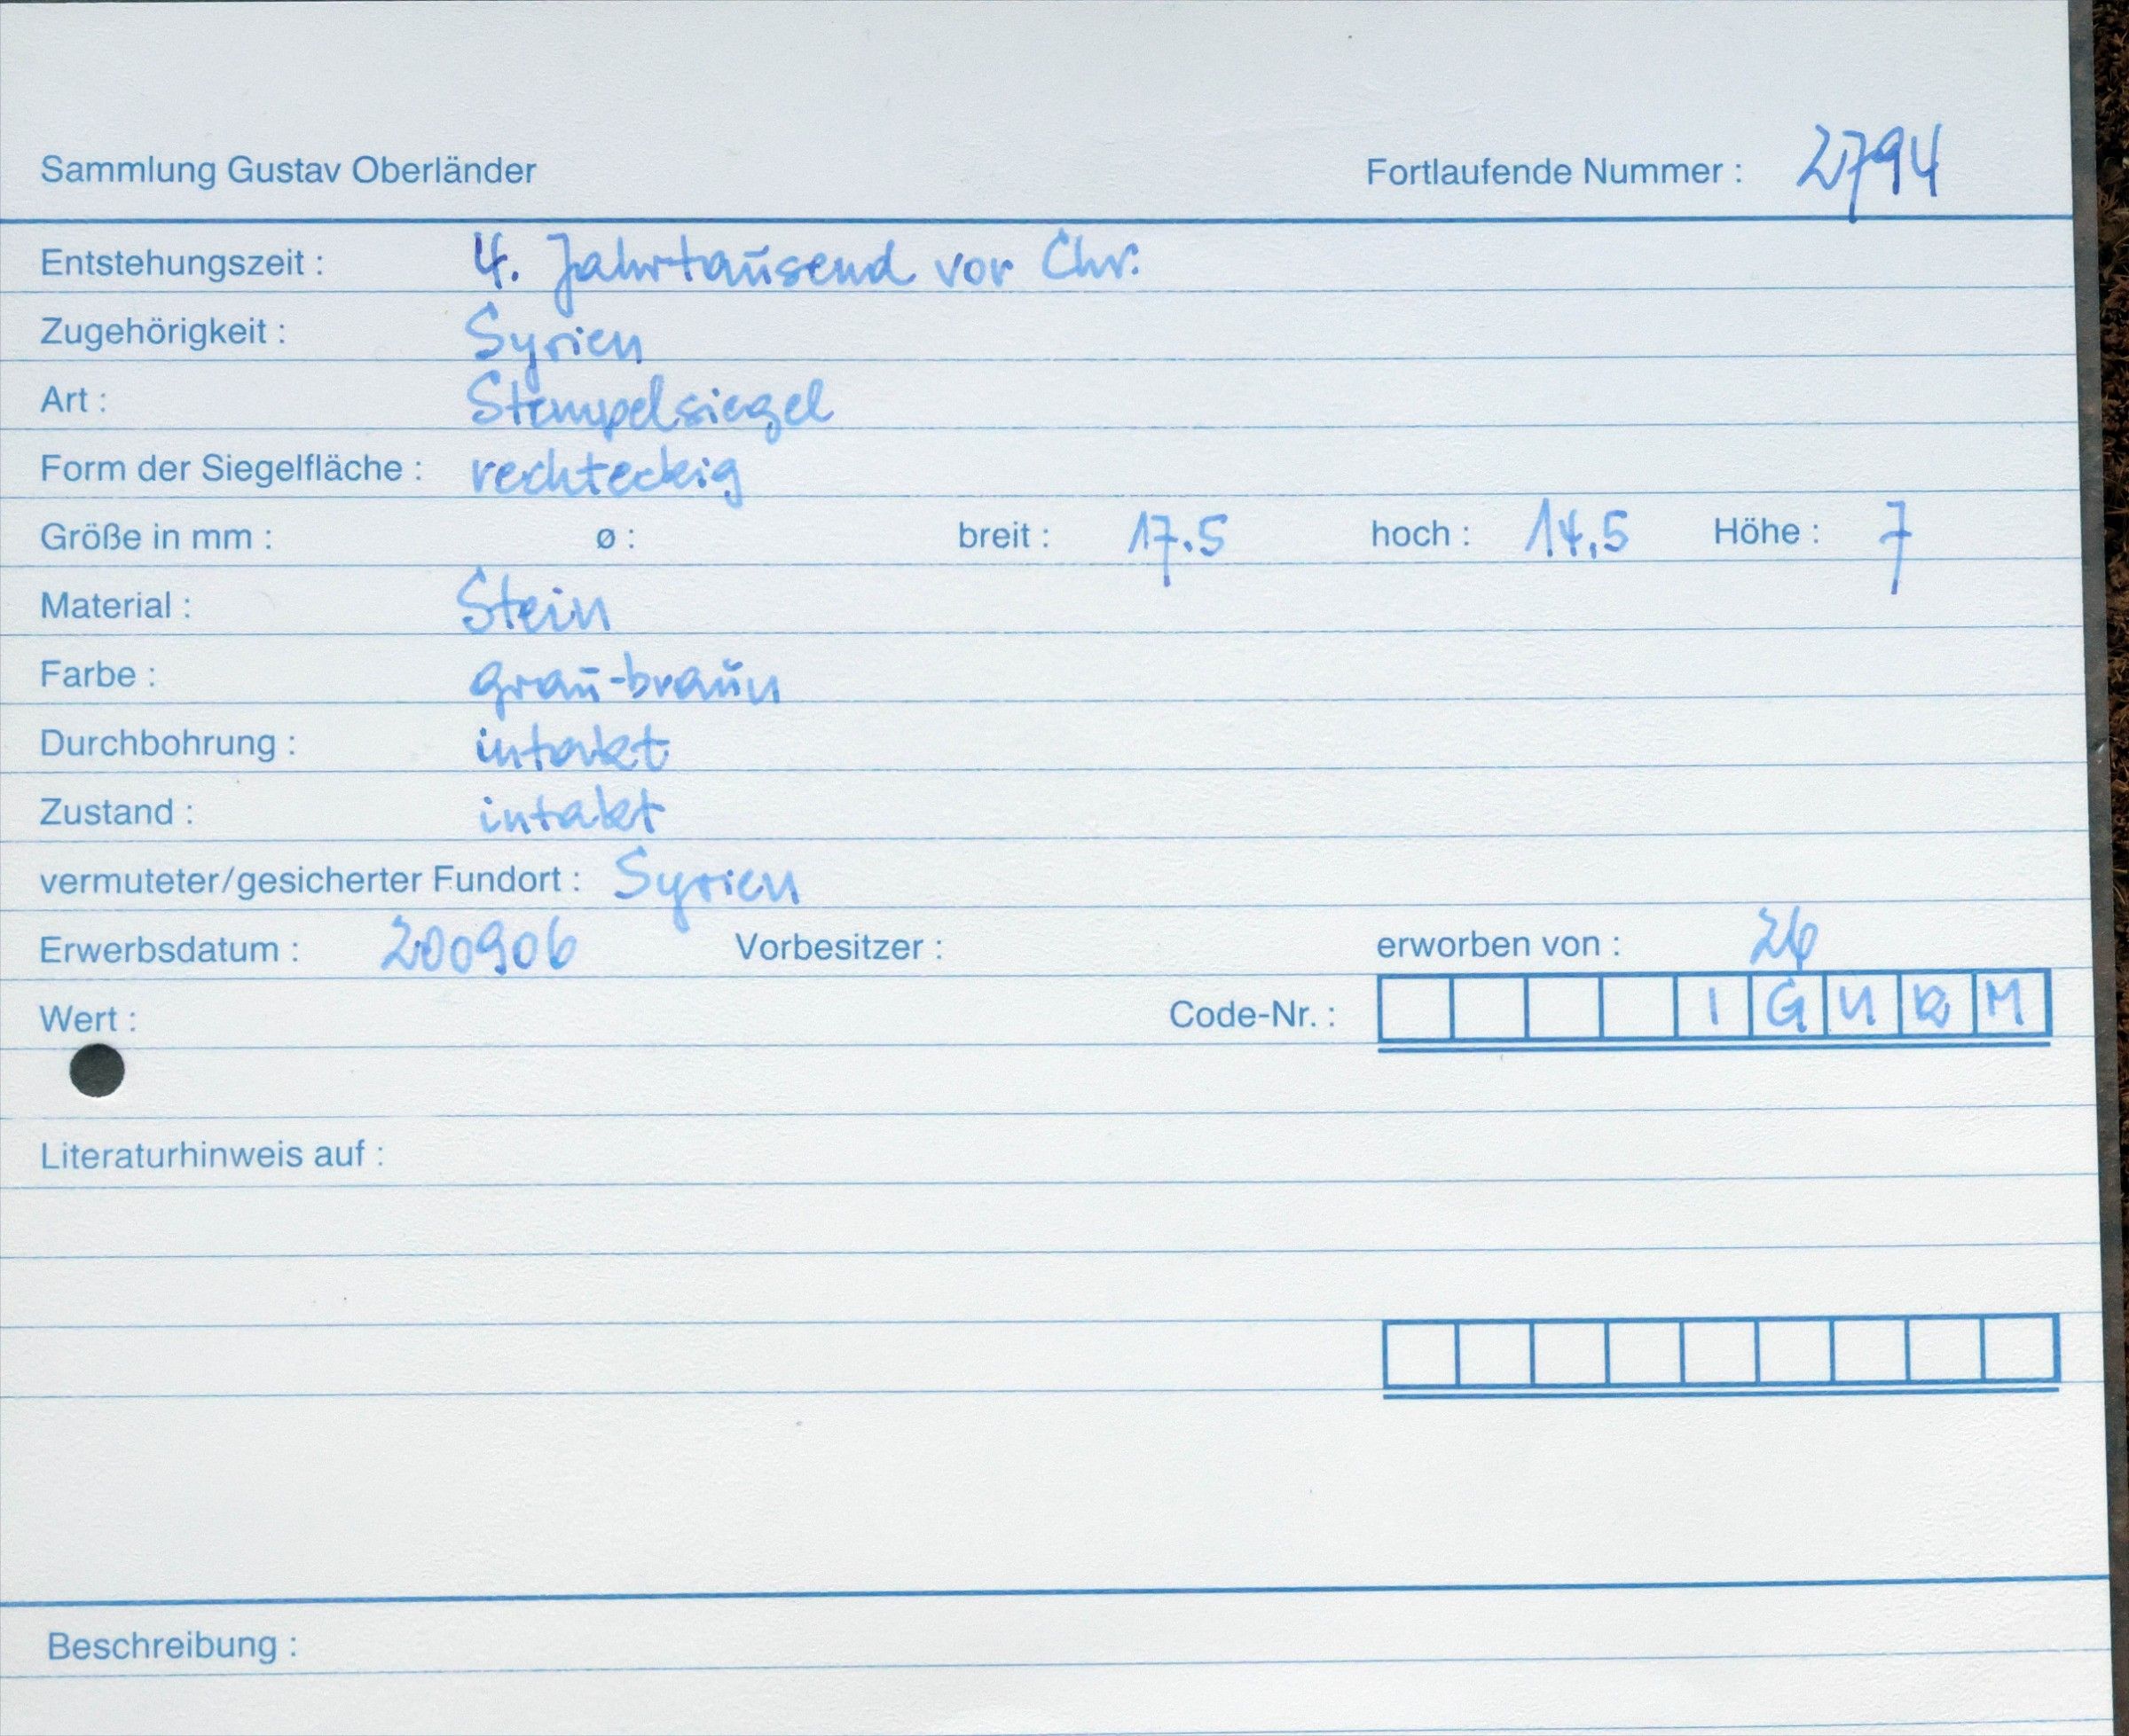 Sammlung Gustav Oberländer Fortlaufende Nummer : 2794
Entstehungszeit : 4. Jahrtausend vor Chr.
Zugehörigkeit : Syrien
Art : Stempelsiegel
Form der Siegelfläche : rechteckig
Größe in mm : ø : breit : 17.5 hoch : 14,5 Höhe : 7
Material : Stein
Farbe : grau-braun
Durchbohrung : intakt
Zustand : intakt
vermuteter/gesicherter Fundort : Syrien
Erwerbsdatum : 200906 Vorbesitzer : erworben von :
Wert : Code-Nr. :
Literaturhinweis auf :
Beschreibung :